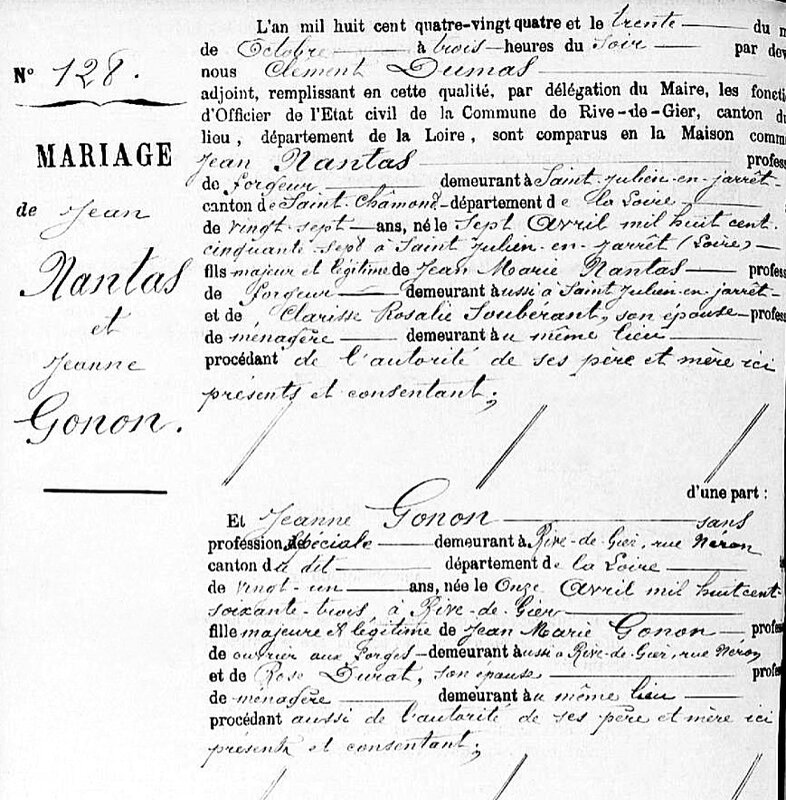 N° 128.
MARIAGE
de Jean
Nantas
et
Jeanne
Gonon.
L'an mil huit cent quatre-vingt quatre et le trente du m
de Octobre à trois heures du soir par dev
nous Clément Dumas
adjoint, remplissant en cette qualité, par délégation du Maire, les foncti
d'Officier de l'Etat civil de la Commune de Rive-de-Gier, canton du
lieu, département de la Loire, sont comparus en la Maison comm
Jean Nantas profess
de forgeur demeurant à Saint-Julien-en-jarrêt-
canton de Saint-Châmond département de la Loire,
de vingt-sept ans, né le sept Avril mil huit cent.
cinquante-sept à Saint Julien-en-jarrêt (Loire)
fils majeur et légitime de Jean Marie Nantas profess
de forgeur demeurant aussi à Saint Julien-en-jarrêt-
et de Clarisse Rosalie Soubérant, son épouse profess
de ménagère demeurant au même lieu
procédant de l'autorité de ses père et mère ici
présents et consentant;
d'une part :
Et Jeanne Gonon sans
profession spéciale demeurant à Rive-de-Gier, rue Néron
canton du dit département de la Loire
de vingt-un ans, née le Onze Avril mil huit cent-
soixante-trois à Rive-de-Gier
fille majeure et légitime de Jean Marie Gonon profess
de ouvrier aux forges demeurant aussi à Rive-de-Gier, rue Néron
et de Rose Durat, son épouse profes
de ménagère demeurant au même lieu
procédant aussi de l'autorité de ses père et mère ici
présents et consentant;